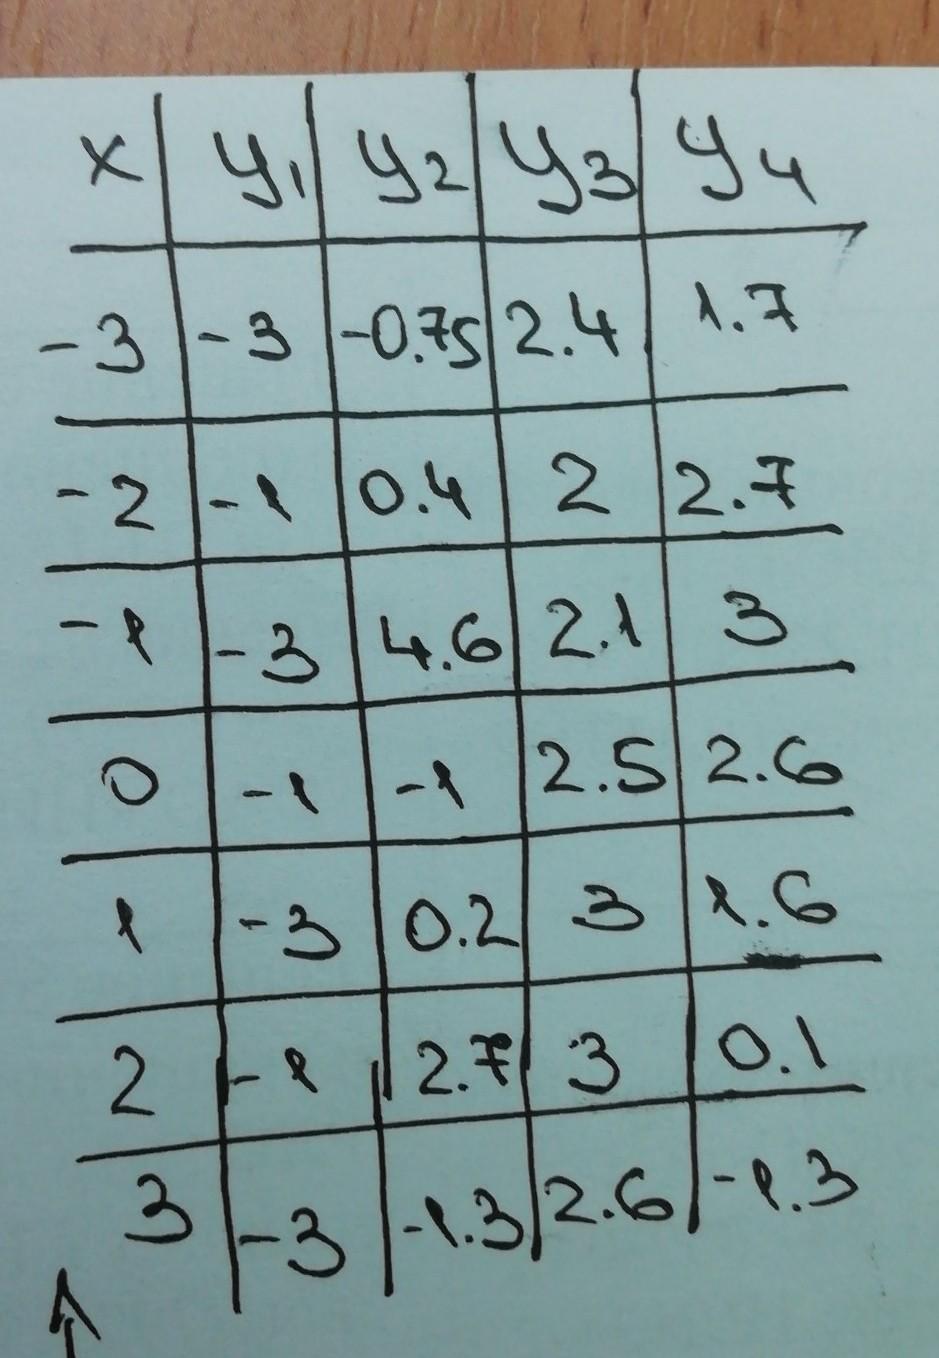 x y1 y2 y3 y4
-3 -3 -0.75 2.4 1.7
-2 -1 0.4 2 2.7
-1 -3 4.6 2.1 3
0 -1 -1 2.5 2.6
1 -3 0.2 3 1.6
2 -1 2.7 3 0.1
3 -3 -1.3 2.6 -1.3